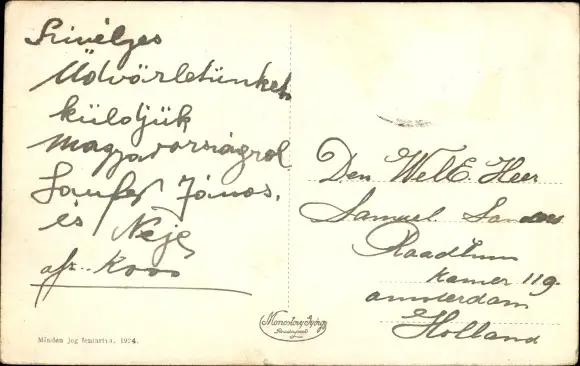 Szivélyes
Üdvözletünket
küldjük
Magyarországról
János.
és Neje
afz. Koos
Den WelE. Heer
Samuel Sanders
Raadhuis
Kamer 119.
amsterdam
Holland
Monostory György
Minden jog fentartva, 1924.